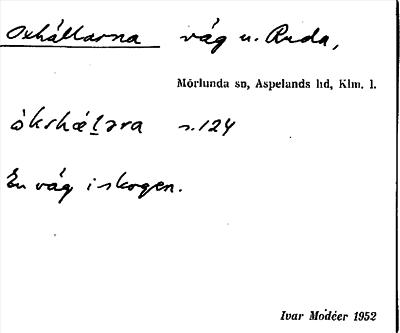 Oxhållarna väg u. Ruda,
Mörlunda sn, Aspelands hd, Klm. l.
òkshæḷəra s.124
En väg i skogen.
Ivar Modéer 1952